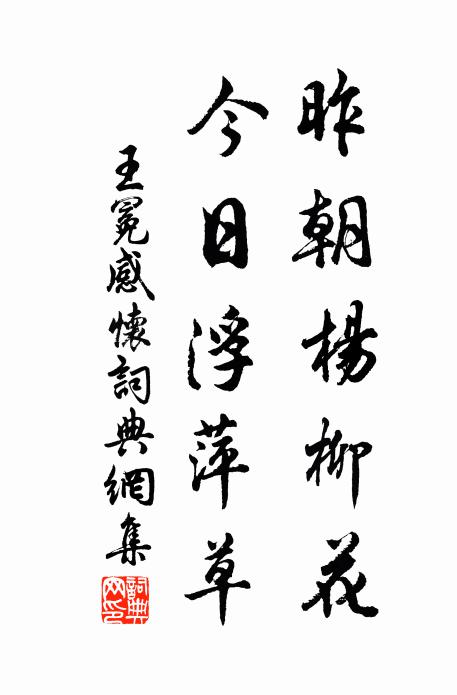 昨朝楊柳花
今日浮萍草
王冕感懷詞典網集
詞典網印